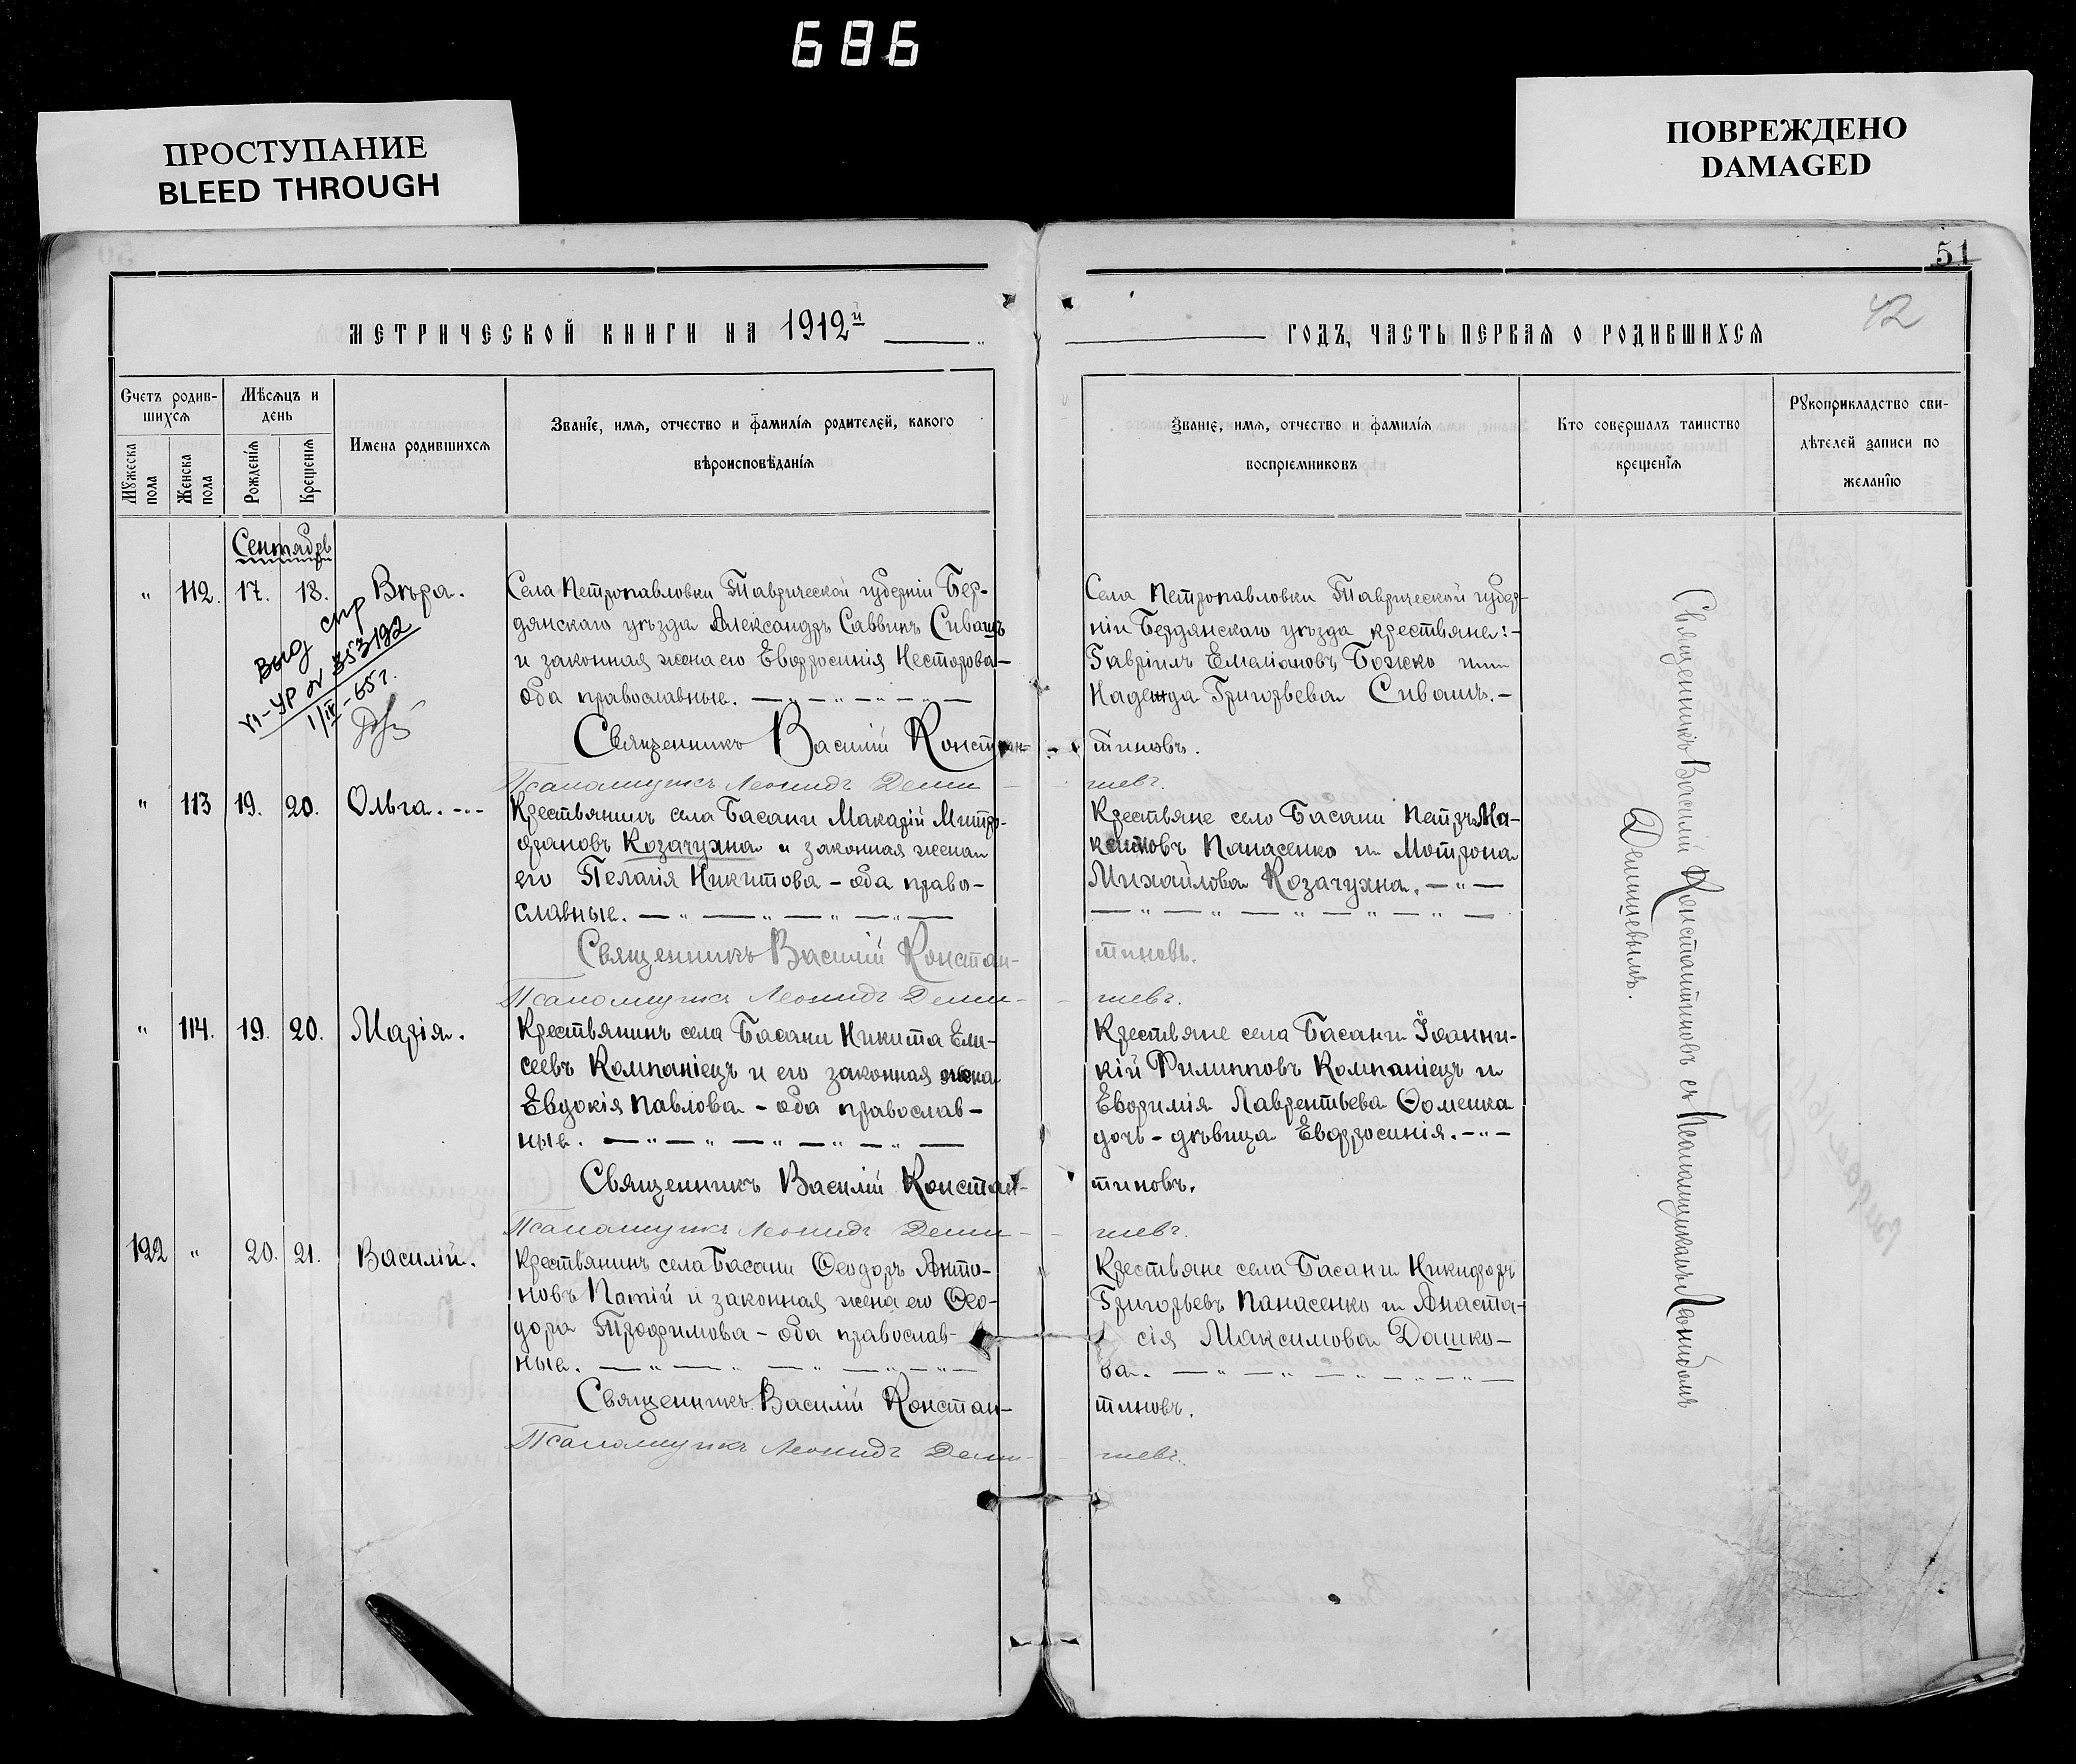 686
ПРОСТУПАНИЕ
BLEED THROUGH
ПОВРЕЖДЕНО
DAMAGED
51
42
МЕТРИЧЕСКОЙ КНИГИ НА 1912й
ГОДЪ, ЧАСТЬ ПЕРВАЯ О РОДИВШИХСЯ
Счетъ родив-
шихся
Мужеска
пола
Женска
пола
Мѣсяцъ и
день
Рожденія
Крещенія
Имена родившихся
Званіе, имя, отчество и фамилія родителей, какого
вѣроисповѣданія
Званіе, имя, отчество и фамилія
воспріемниковъ
Кто совершалъ таинство
крещенія
Рукоприкладство сви-
дѣтелей записи по
желанію
Сентябрь
" 112. 17. 18. Вѣра.
Села Петропавловки Таврической губерніи Бер-
дянскаго уѣзда Александръ Саввинъ Сивашъ
и законная жена его Евфросинія Несторова -
оба православные.
Священникъ Василій Констан-
Псаломщикъ Леонидъ Деми
Села Петропавловки Таврической губер-
ніи Бердянскаго уѣзда крестьяне: -
Гавріилъ Емеліановъ Божко и
Надежда Григорьева Сивашъ. -
тиновъ.
шевъ.
выд спр
VI-УР № 353192
1/IV-65г.
" 113 19. 20. Ольга.
Крестьянинъ села Басани Макарій Митро-
фановъ Козачухна и законная жена
его Пелагія Никитова - оба право-
славные.
Священникъ Василій Констан-
Псаломщикъ Леонидъ Деми-
Крестьяне село Басани Петръ Ма-
Панасенко и Мотрона
Михайлова Козачухна.
тиновъ.
шевъ.
" 114. 19. 20. Марія.
Крестьянинъ села Басани Никита Ели-
сеевъ Компаніецъ и его законная жена
Евдокія Павлова - оба православ-
ные.
Священникъ Василій Констан-
Псаломщикъ Леонидъ Деми-
Крестьяне села Басани Іоанни-
кій Филипповъ Компаніецъ и
Евфимія Лаврентьева Ѳоменка
дочь - дѣвица Евфросинія.
тиновъ.
шевъ.
122 " 20. 21. Василій.
Крестьянинъ села Басани Ѳеодоръ Анто-
новъ Патій и законная жена его Ѳео-
дора Трофимова - оба православ-
ные.
Священникъ Василій Констан-
Псаломщикъ Леонидъ Деми-
Крестьяне села Басани Никифоръ
Григорьевъ Панасенко и Анаста-
сія Максимова Дашко-
ва.
тиновъ.
шевъ.
Священникъ Василій Константиновъ съ Псаломщикомъ Леонидомъ
Демишевымъ.